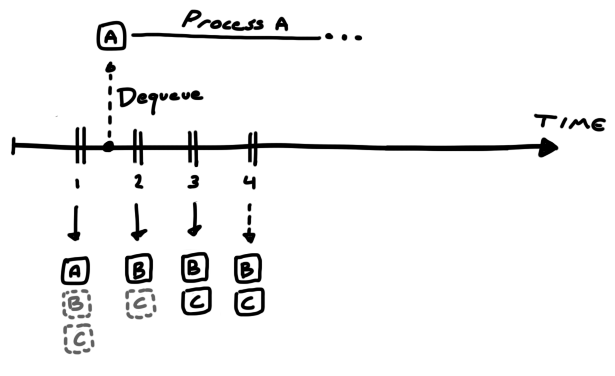 Process A
A
Dequeue
TIME
1 2 3 4
A B B B
B C C C
C